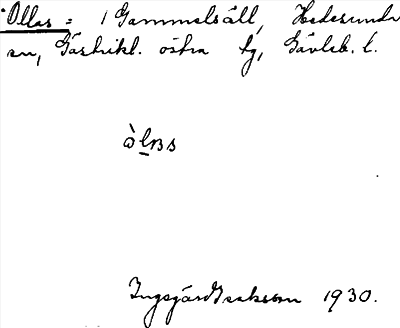 Ollas = i Gammelsäll, Hedesunda
sn, Gästrikl. östra tg, Gävleb. l.
òlas
Ingegärd Isaksson 1930.